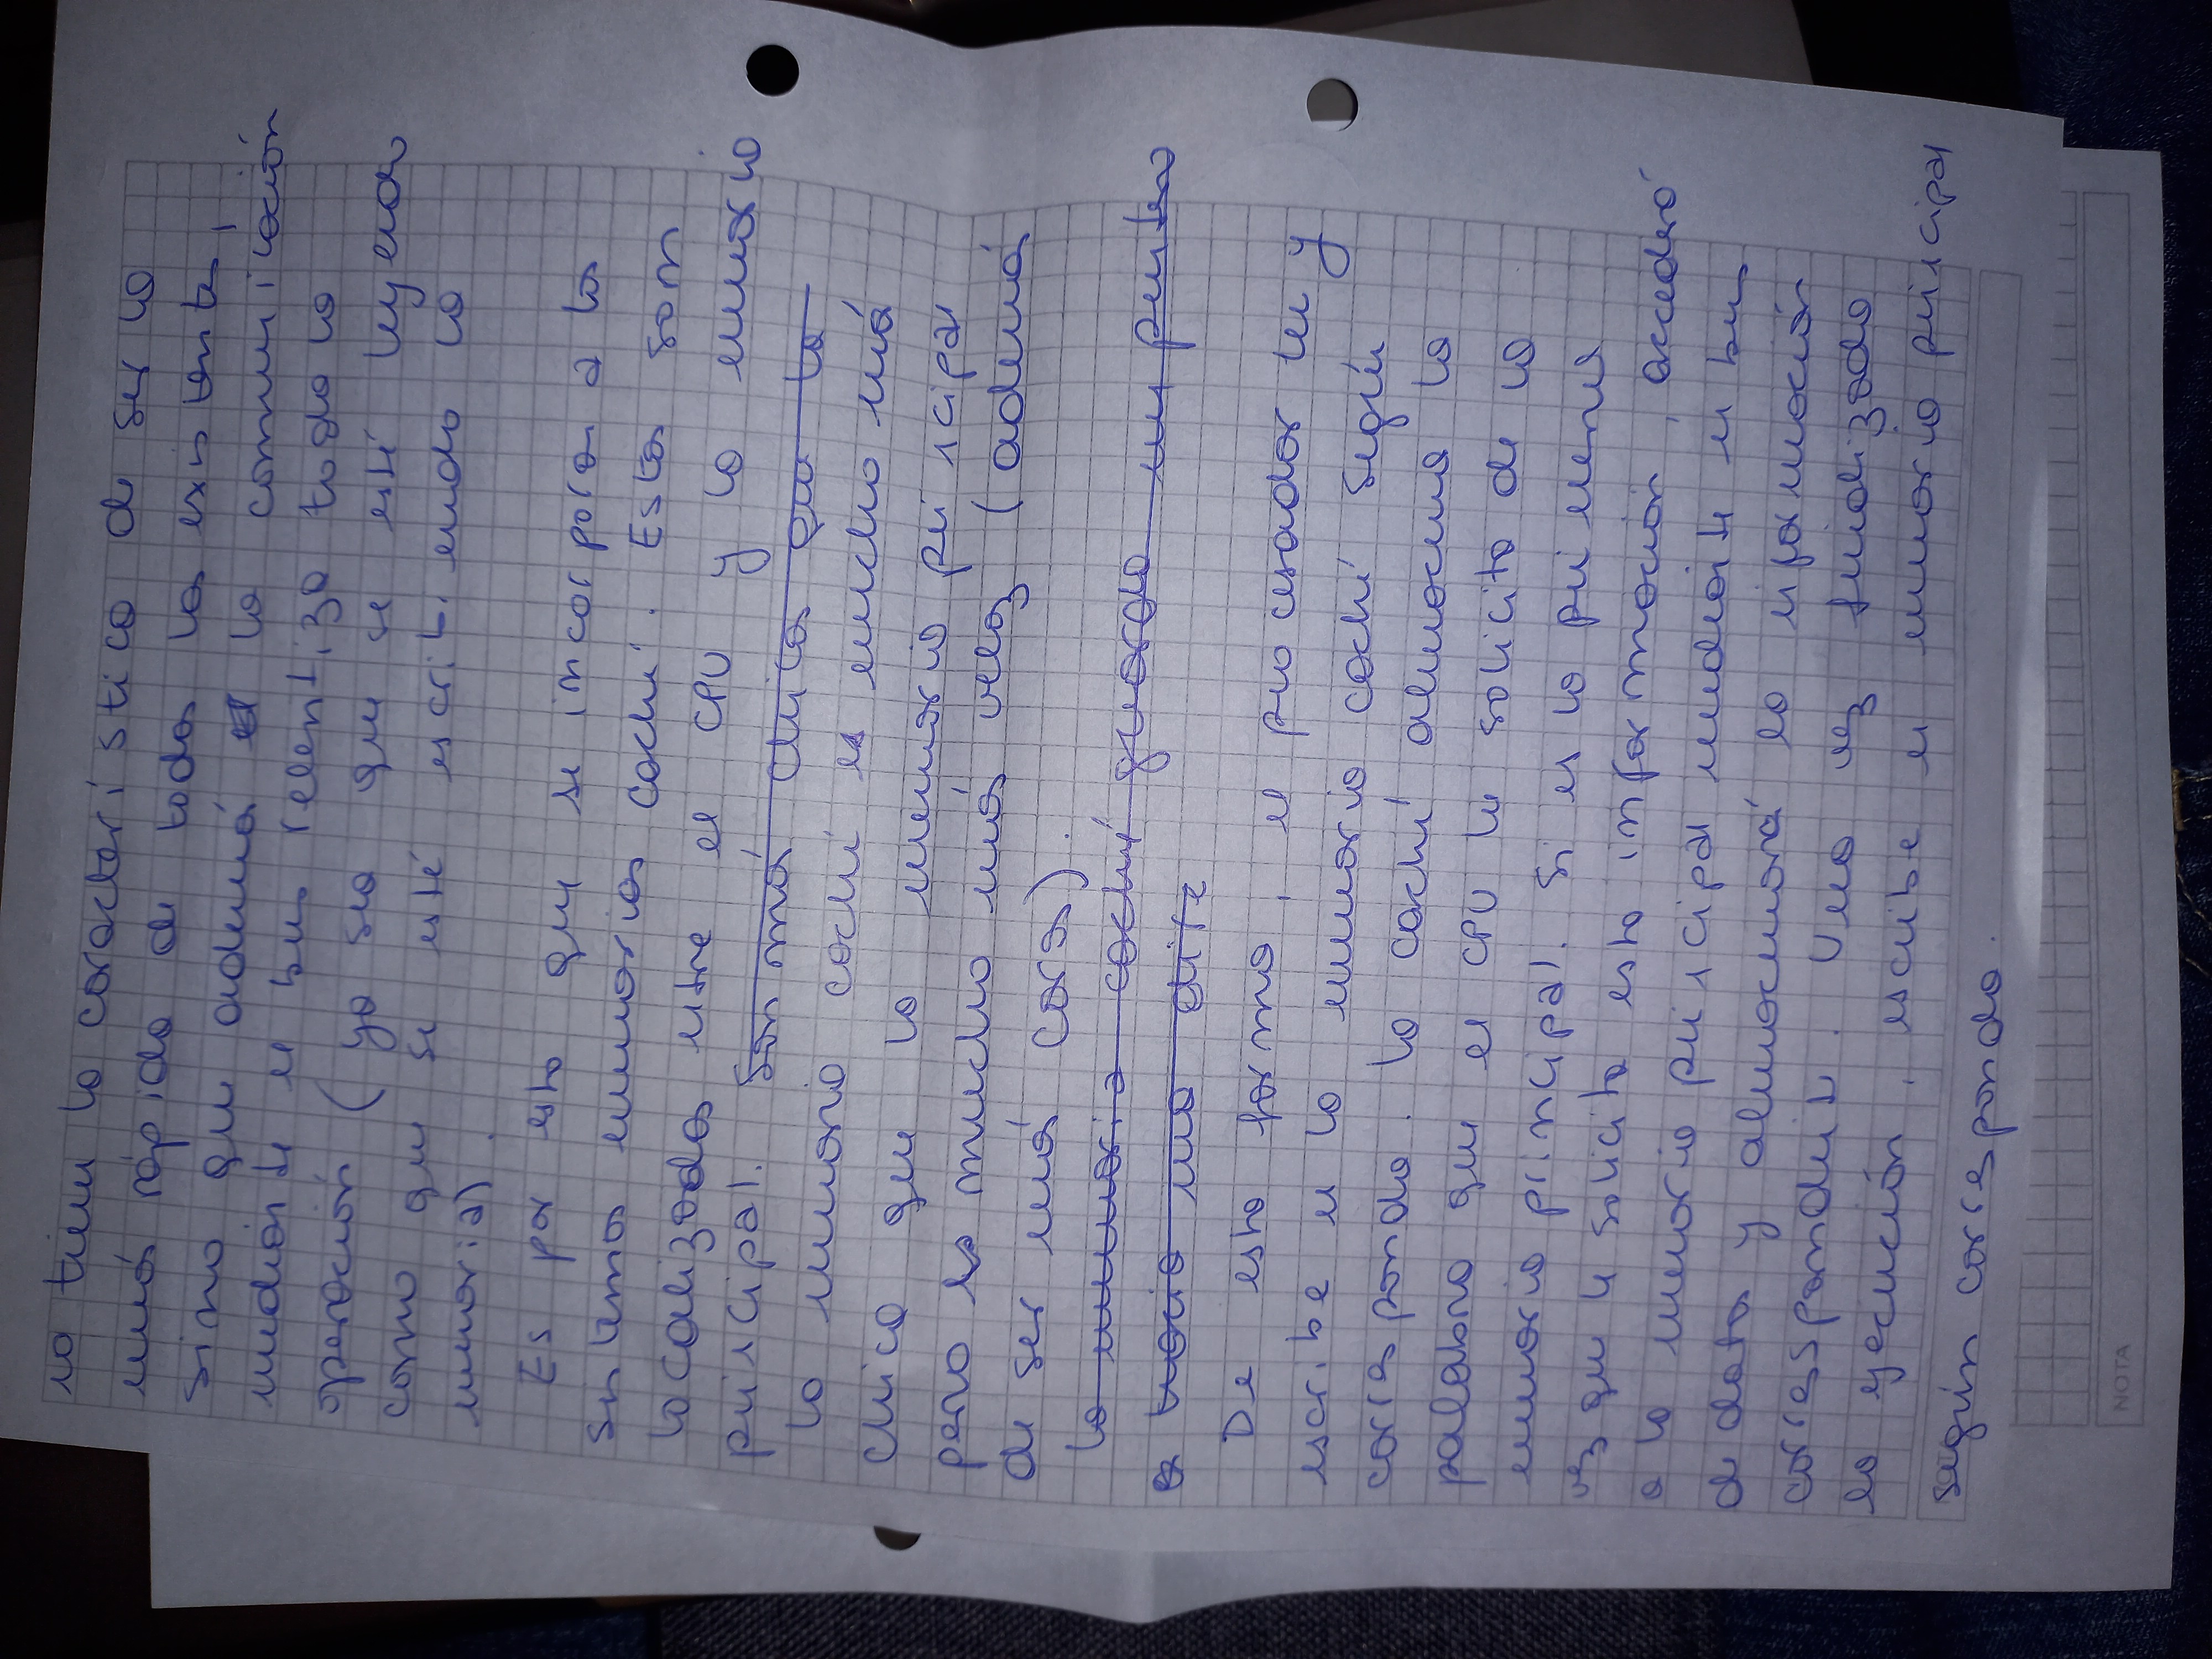 no tiene la característica de ser la
más rápida de todas las existentes,
sino que además la comunicación
mediante el bus relentiza toda la
operación (ya sea que se esté leyendo
como que se esté escribiendo la
memoria).
Es por esto que se incorporan a los
sistemas memorias caché. Estas son
localizadas entre el CPU y la memoria
principal. Son más chicas que la
La memoria caché es mucho más
chica que la memoria principal
pero es mucho más veloz (además
de ser más caras).
La memoria caché guarda un puntero
hacia una dire
De esta forma, el procesador lee y
escribe en la memoria caché según
corresponda. La caché almacena la
palabra que el CPU le solicita de la
memoria principal. Si es la primera
vez que le solicita esta información, accederá
a la memoria principal mediante el bus
de datos y almacenará la información
correspondiente. Una vez finalizada
la ejecución, escribe en memoria principal
según corresponda.
NOTA